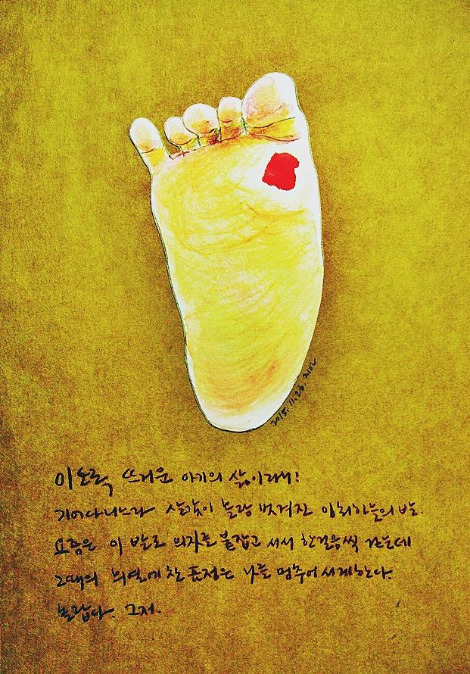 2015.11.26.
이토록 뜨거운 아기의 삶이라니!
기어다니느라 살갗이 홀랑 벗겨진 이 하늘의 발.
요즘은 이 발로 의자를 붙잡고 서서 한걸음씩 걷는데
그때의 희열에 찬 표정은 나를 멈추어 서게한다.
놀랍다. 그저.